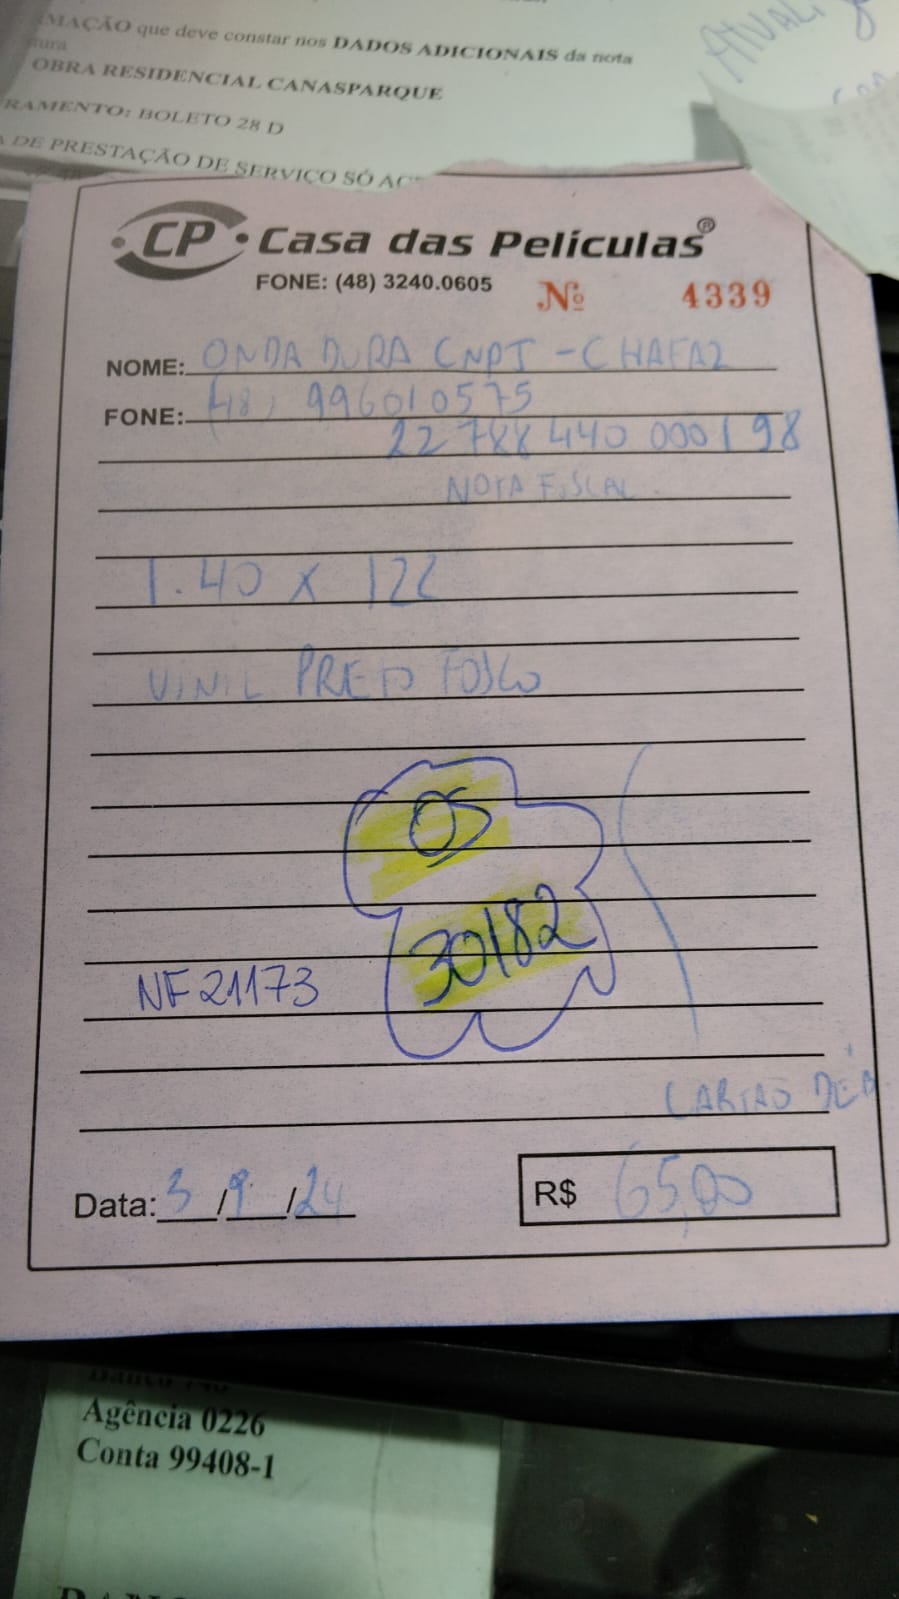 MAÇÃO que deve constar nos DADOS ADICIONAIS da nota
OBRA RESIDENCIAL CANASPARQUE
RAMENTO: BOLETO 28 D
DE PRESTAÇÃO DE SERVIÇO SÓ AC
CP Casa das Películas®
FONE: (48) 3240.0605 Nº 4339
NOME: ONDA DURA CNPJ - CHAFAZ
FONE: (48) 996010575
22 788 440 0001 98
NOTA FISCAL.
1.40 X 122
VINIL PRETO FOSCO
OS
30182
NF 21173
CARTÃO DÉB
Data: 3/9/24 R$ 65,00
Agência 0226
Conta 99408-1